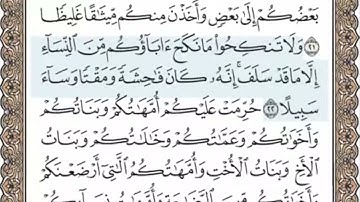 بَعْضُكُمْ إِلَىٰ بَعْضٍ وَأَخَذْنَ مِنكُم مِّيثَٰقًا غَلِيظًا
٢١ وَلَا تَنكِحُوا۟ مَا نَكَحَ ءَابَآؤُكُم مِّنَ ٱلنِّسَآءِ
إِلَّا مَا قَدْ سَلَفَ ۚ إِنَّهُۥ كَانَ فَٰحِشَةً وَمَقْتًا وَسَآءَ
سَبِيلًا ٢٢ حُرِّمَتْ عَلَيْكُمْ أُمَّهَٰتُكُمْ وَبَنَاتُكُمْ
وَأَخَوَٰتُكُمْ وَعَمَّٰتُكُمْ وَخَٰلَٰتُكُمْ وَبَنَاتُ
ٱلْأَخِ وَبَنَاتُ ٱلْأُخْتِ وَأُمَّهَٰتُكُمُ ٱلَّٰتِىٓ أَرْضَعْنَكُمْ